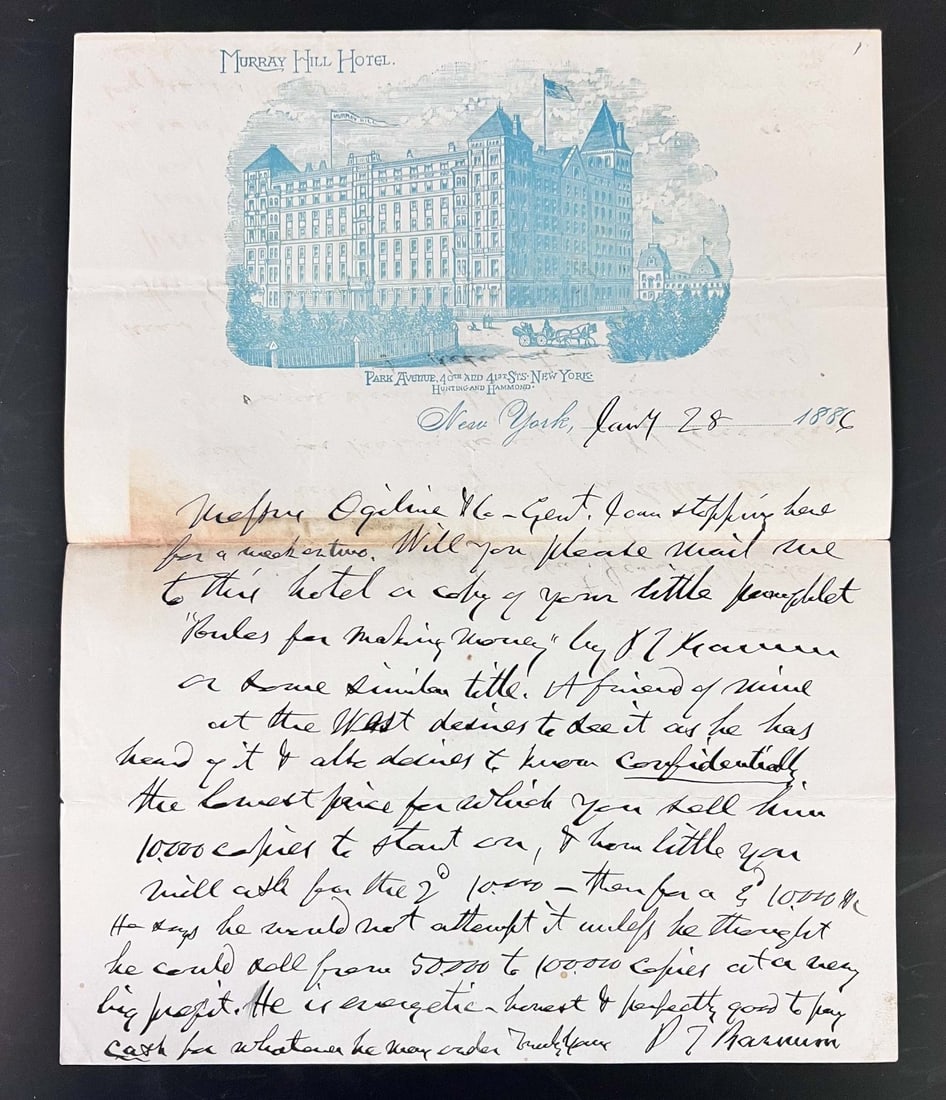 MURRAY HILL HOTEL.
MURRAY HILL
PARK AVENUE, 40TH AND 41ST STS. NEW YORK.
HUNTING AND HAMMOND.
New York, Jany 28 1886
Messrs Ogilvie & Co - Gent. I am stopping here
for a week or two. Will you please mail me
to this hotel a copy of your little pamphlet
"Rules for making money" by P T Barnum
or some similar title. A friend of mine
at the West desires to see it as he has
heard of it & also desires to know confidentially
the lowest price for which you sell him
10.000 copies to start on, & how little you
will ask for the 2d 10.000 - then for a 3d 10.000 &c
He says he would not attempt it unless he thought
he could sell from 50000 to 100.000 copies at a very
big profit. He is energetic - honest & perfectly good to pay
cash for whatever he may order Truly Yours P T Barnum